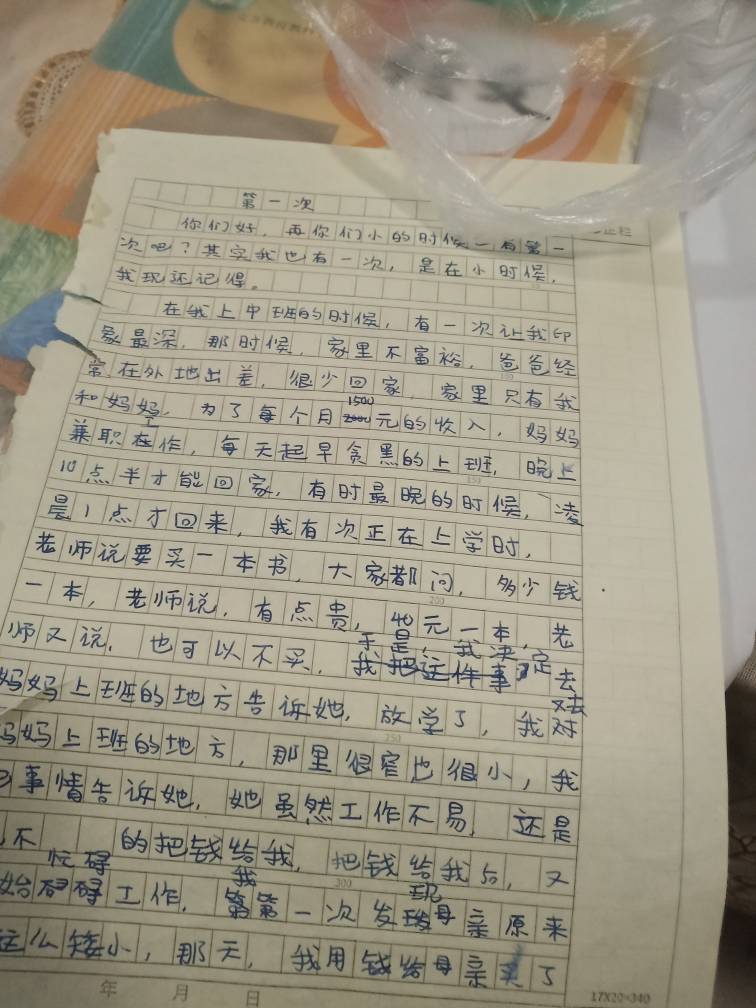 第一次
你们好，再你们小的时候一有第一
次吧？其实我也有一次，是在小时候，
我现还记得。
在我上中班的时候，有一次让我印
象最深，那时候，家里不富裕，爸爸经
常在外地出差，很少回家，家里只有我
1500
和妈妈，为了每个月2000元的收入，妈妈
兼职工作，每天起早贪黑的上班，晚上
10点半才能回家，有时最晚的时候，凌
晨1点才回来，我有次正在上学时，
老师说要买一本书，大家都问，多少钱
一本，老师说，有点贵，40元一本，老
于是，我决定
师又说，也可以不买，我把这件事去
妈妈上班的地方告诉她，放学了，我对
妈妈上班的地方，那里很窄也很小，我
事情告诉她，她虽然工作不易，还是
不 的把钱给我，把钱给我后，又
忙碌 我 现
始碌碌工作，第一次发母亲原来
这么矮小，那天，我用钱给母亲买了
年 月 日
17X20=340